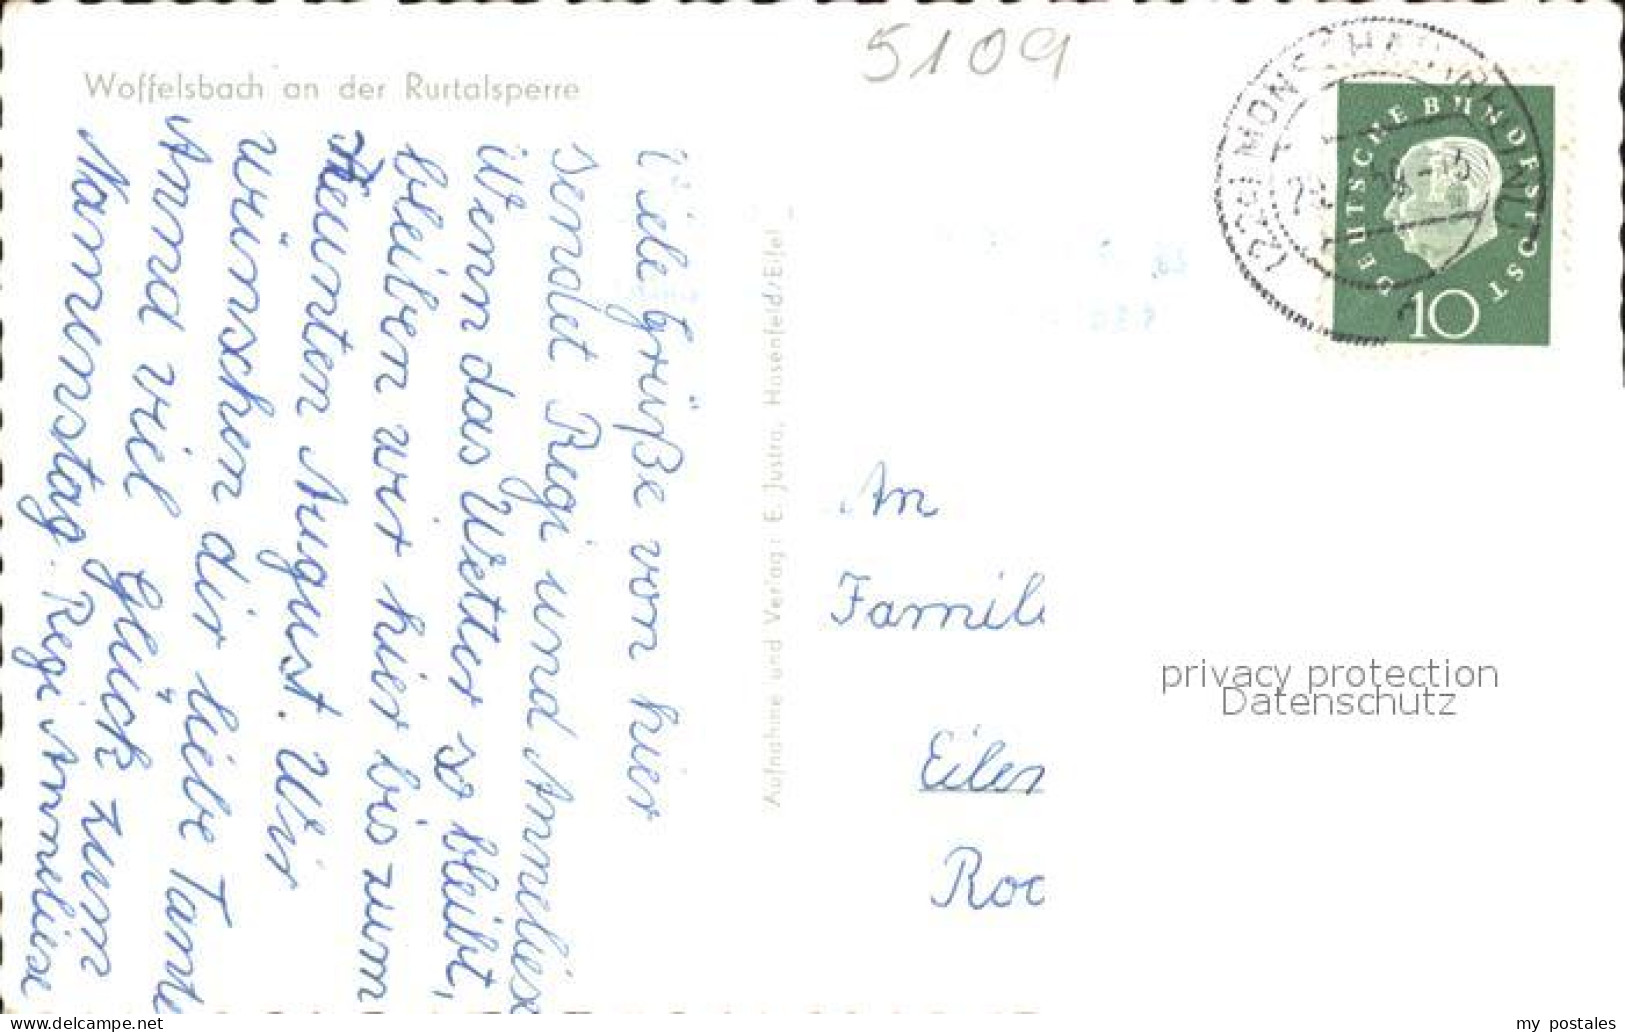 Woffelsbach an der Rurtalsperre
5109
Viele grüße von hier
sendet Regi und Anneliese
Wenn das Wetter so bleibt,
bleiben wir hier bis zum
Neunten August. Wir
wünschen dir liebe Tante
Anna viel Glück zum
Namenstag. Regi Anneliese
Aufnahme und Verlag: E. Justra, Hasenfeld/Eifel
DEUTSCHE BUNDESPOST
10
An
Famil
Eilen
Roc
privacy protection
Datenschutz
www.delcampe.net
my_postales